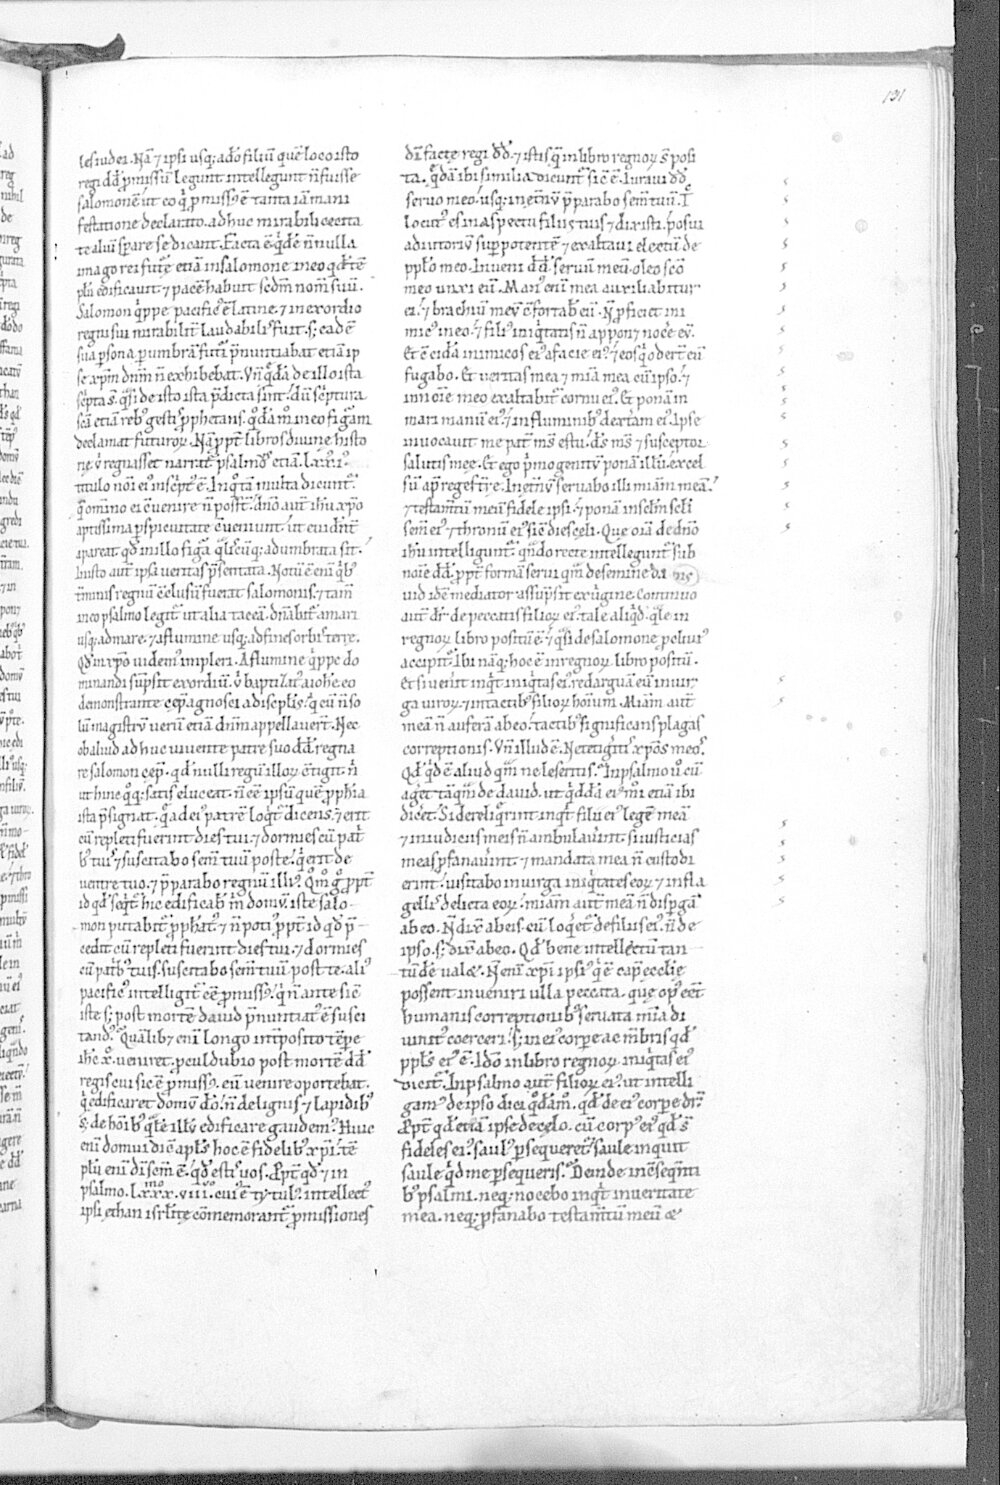 131
les iudei. Nā ⁊ ipsi usq; adeo filiū quē loco isto
regi dđ ꝓmissū legunt intellegunt n̄ fuisse
salomonē ut eo q̇ ꝓmissꝰ ē tanta iā mani
festatione declarato. adhuc mirabili cecita
te aliū sperare se dicant. Facta ē qđē n̄nulla
imago rei futurę etiā in salomone in eo qđ tē
plū edificauit ⁊ pacē habuit scdm̄ nom̄ suū.
Salomon q̇ppe pacificꝰ ē latine. ⁊ in exordio
regni sui mirabilit̄ laudabilis fuit. s; eadē
sua ꝑsona ꝑ umbrā futuri p̄nuntiabat etiā ip
se xp̄m dn̄m n̄ exhibebat. Vn̄ q̇dā de illo ista
sc̄pta s̄. q̇si de isto ista p̄dicta sint. dū sc̄ptura
sc̄a etiā rebꝰ gestis ꝓphetans. q̇dāmº in eo figurā
declamat futuroꝝ. Nā p̄pt̄ libros diuinę histo
rię. ū regnasset narrat̄. psalmꝰ etiā .lxxiꝰ.
titulo nōi eiꝰ inscptꝰ ē. In q̇ tā multa dicunt̄
q̄ omino ei c̄uenire n̄ poss̄t. dn̄o aut̄ ih̄u xp̄o
aptissima ꝑspicuitate c̄ueniunt. ut euident̄
appareat qđ in illo figura q̄liscūq; adumbrata sit.
in isto aut̄ ipsa ueritas p̄sentata. Notū ē enī q̇bꝰ
t̄minis regnū c̄clusū fuerat salomonis. ⁊ tam̄
in eo psalmo legit̄ ut alia taceā. dn̄abit̄ a mari
usq; ad mare. ⁊ a flumine usq; ad fines orbis terre.
Qđ in xp̄o uidemꝰ impleri. A flumine q̇ppe do
minandi sūpsit exordiū. ū baptizatꝰ a ioh̄e eo
demonstrante cepit agnosci a disciplis. q̇ eū n̄ so
lū magistrū uerū etiā dn̄m appellauert̄. Nec
ob aliud adhuc uiuente patre suo dđ. regna
re salomon cep̄. qđ nulli regū illoꝝ c̄tigit. n̄
ut hinc q̇q; satis eluceat. n̄ eē ipsū quē ꝓphia
ista p̄signat. q̄ ad eiꝰ patrē loq̇t̄ dicens. ⁊ erit
cū repleti fuerint dies tui. ⁊ dormies cū pat̄
bꝰ tuis ⁊ suscitabo sem̄ tuū post te. q̇ erit de
uentre tuo. ⁊ p̄parabo regnū illiꝰ. Qm̄º g̊ ꝓpt̄
id qđ seq̇t̄. hic edificabit m̄ domū. iste salo-
mon putabit̄ ꝓphatꝰ. ⁊ n̄ potiꝰ ꝓpt̄ id qđ p̄-
cedit cū repleti fuerint dies tui. ⁊ dormies
cū pat̄bꝰ tuis. suscitabo sem̄ tuū post te. aliꝰ
pacificꝰ intelligit̄ eē ꝓmissꝰ. q̇ n̄ ante sic̄
iste s; post mortē dauid p̄nuntiatꝰ ē susci
tandꝰ. Quālibꝫ enī longo int̄posito tēpore
ih̄c xp̄c ueniret. ꝓculdubio post mortē dđ
regis cui sic ē ꝓmissꝰ. eū uenire oportebat.
q̇ edificaret domū dō. n̄ de lignis ⁊ lapidibꝰ
s; de hōibꝰ q̄lē illū edificare gaudemꝰ. Huic
enī domui dic̄ apl̄s hoc ē fidelibꝰ xp̄i. tē
plū enī dī sc̄m ē. qđ estis uos. Ꝓpt̄ qđ ⁊ in
psalmo .lxxx.viii. cuiꝰ ē tytulꝰ. intellectꝰ
ipsi ethan isrl̄itę cōmemorant̄ ꝓmissiones
dī factę regi dđ. ⁊ istis q̄ in libro regnoꝝ s̄ posi
ta. q̇dā ibi similia dicunt̄ sic̄ ē. Iuraui dđ
seruo meo. usq; in et̄nū p̄parabo sem̄ tuū. Itē
locutꝰ es in aspectu filiis tuis ⁊ dixisti. posui
adiutoriū sup potentē ⁊ exaltaui electū de
pplō meo. Inueni dđ seruū meū. oleo sc̄o
meo unxi eū. Manꝰ enī mea auxiliabitur
ei. ⁊ brachiū meū c̄fortabit eū. N̄ ꝓficiet ini
micꝰ in eo. ⁊ filiꝰ iniq̇tatis n̄ apponet nocēe ei.
Et c̄cidā inimicos eiꝰ a facie eiꝰ. ⁊ eos q̇ odert̄ eū
fugabo. Et ueritas mea ⁊ mīa mea cū ipso. ⁊
in nōie meo exaltabit̄ cornu eiꝰ. Et ponā in
mari manū eiꝰ. ⁊ in fluminibꝰ dextram eiꝰ. Ipse
inuocauit me pat̄ m̄s es tu. ds̄ m̄s ⁊ susceptor
salutis meę. Et ego p̄mogenitū ponā illū. excel
sū ap̄ reges t̄re. In et̄nū seruabo illi mīam meā.
⁊ testam̄tū meū fidele ipsi. ⁊ ponā in sēclm̄ sēcli
sem̄ eiꝰ ⁊ thronū eiꝰ sic̄ dies celi. Que oīa de dn̄o
ih̄u intelligunt̄. qn̄do recte intelligunt̄ sub
nōie dđ. ꝓpt̄ formā serui qm̄ de semine da
uid idē mediator assūpsit ex uirgine. Continuo
aut̄ dr̄ de peccatis filioꝝ eiꝰ. tale aliq̇d. q̄le in
regnoꝝ libro positū ē. ⁊ q̇si de salomone procliuiꝰ
accipit̄. Ibi naq; hoc ē in regnoꝝ libro positū.
Et si uenit inq̇t iniq̇tas eiꝰ. redarguā eū in uir
ga uiroꝝ. ⁊ in tactibꝰ filioꝝ hoīum. Mīam aut̄
meā n̄ auferā ab eo. tactibꝰ significans plagas
correptionis. Vn̄ illud ē. Ne tetigitis xp̄os meos.
Qđ q̇d ē aliud qm̄ ne leseritis. In psalmo ū cū
aget̄ tāqm̄ de dauid. ut qđdā eiꝰmº etiā ibi
dicet̄. Si dereliq̇rint inq̇t filii eiꝰ legē meā
⁊ in iudiciis meis n̄ ambulauint̄. si iusticias
meas ꝓfanauint̄. ⁊ mandata mea n̄ custodi
erint. uisitabo in uirga iniq̇tates eoꝝ ⁊ in fla
gellis delicta eoꝝ. mīam aut̄ meā n̄ dispgā
ab eo. N̄ dix̄ ab eis. cū loq̇et̄ de filiis eiꝰ. n̄ de
ipso. s; dix̄ ab eo. Qđ bene intellectū tan
tūdē ualꝫ. N̄ enī xp̄i ipsiꝰ q̇ ē caput ecclīe
possent inueniri ulla peccata. quę opꝰ eēt̄
humanis correptionibꝰ seruata mīa di
uinit̄ coerceri. s; in eiꝰ corpore ac mēbris qđ
ppls̄ eiꝰ ē. Ideo in libro regnoꝝ. iniq̇tas eiꝰ
dicit̄. In psalmo aut̄ filioꝝ eiꝰ. ut intelli
gamꝰ de ipso dici q̇dāmº. qđ de eiꝰ corpore dr̄.
Ꝓpt̄ qđ etiā ipse de celo. cū corpꝰ eiꝰ qđ s̄
fideles eiꝰ. saulꝰ ꝑsequeret̄. saule inquit
saule q̇d me ꝑsequeris. Deinde in c̄seqn̄ti
bꝰ psalmi. neq; nocebo inq̇t in ueritate
mea. neq; ꝓfanabo testam̄tū meū &